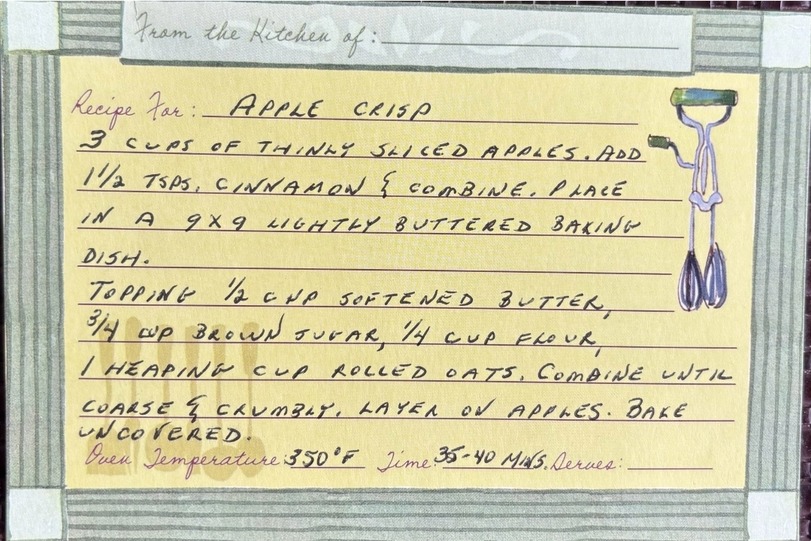 From the Kitchen of:
Recipe For: APPLE CRISP
3 CUPS OF THINLY SLICED APPLES. ADD
1 1/2 TSPS. CINNAMON & COMBINE. PLACE
IN A 9X9 LIGHTLY BUTTERED BAKING
DISH.
TOPPING 1/2 CUP SOFTENED BUTTER,
3/4 CUP BROWN SUGAR, 1/4 CUP FLOUR,
1 HEAPING CUP ROLLED OATS. COMBINE UNTIL
COARSE & CRUMBLY. LAYER ON APPLES. BAKE
UNCOVERED.
Oven Temperature: 350°F Time: 35-40 MINS. Serves: